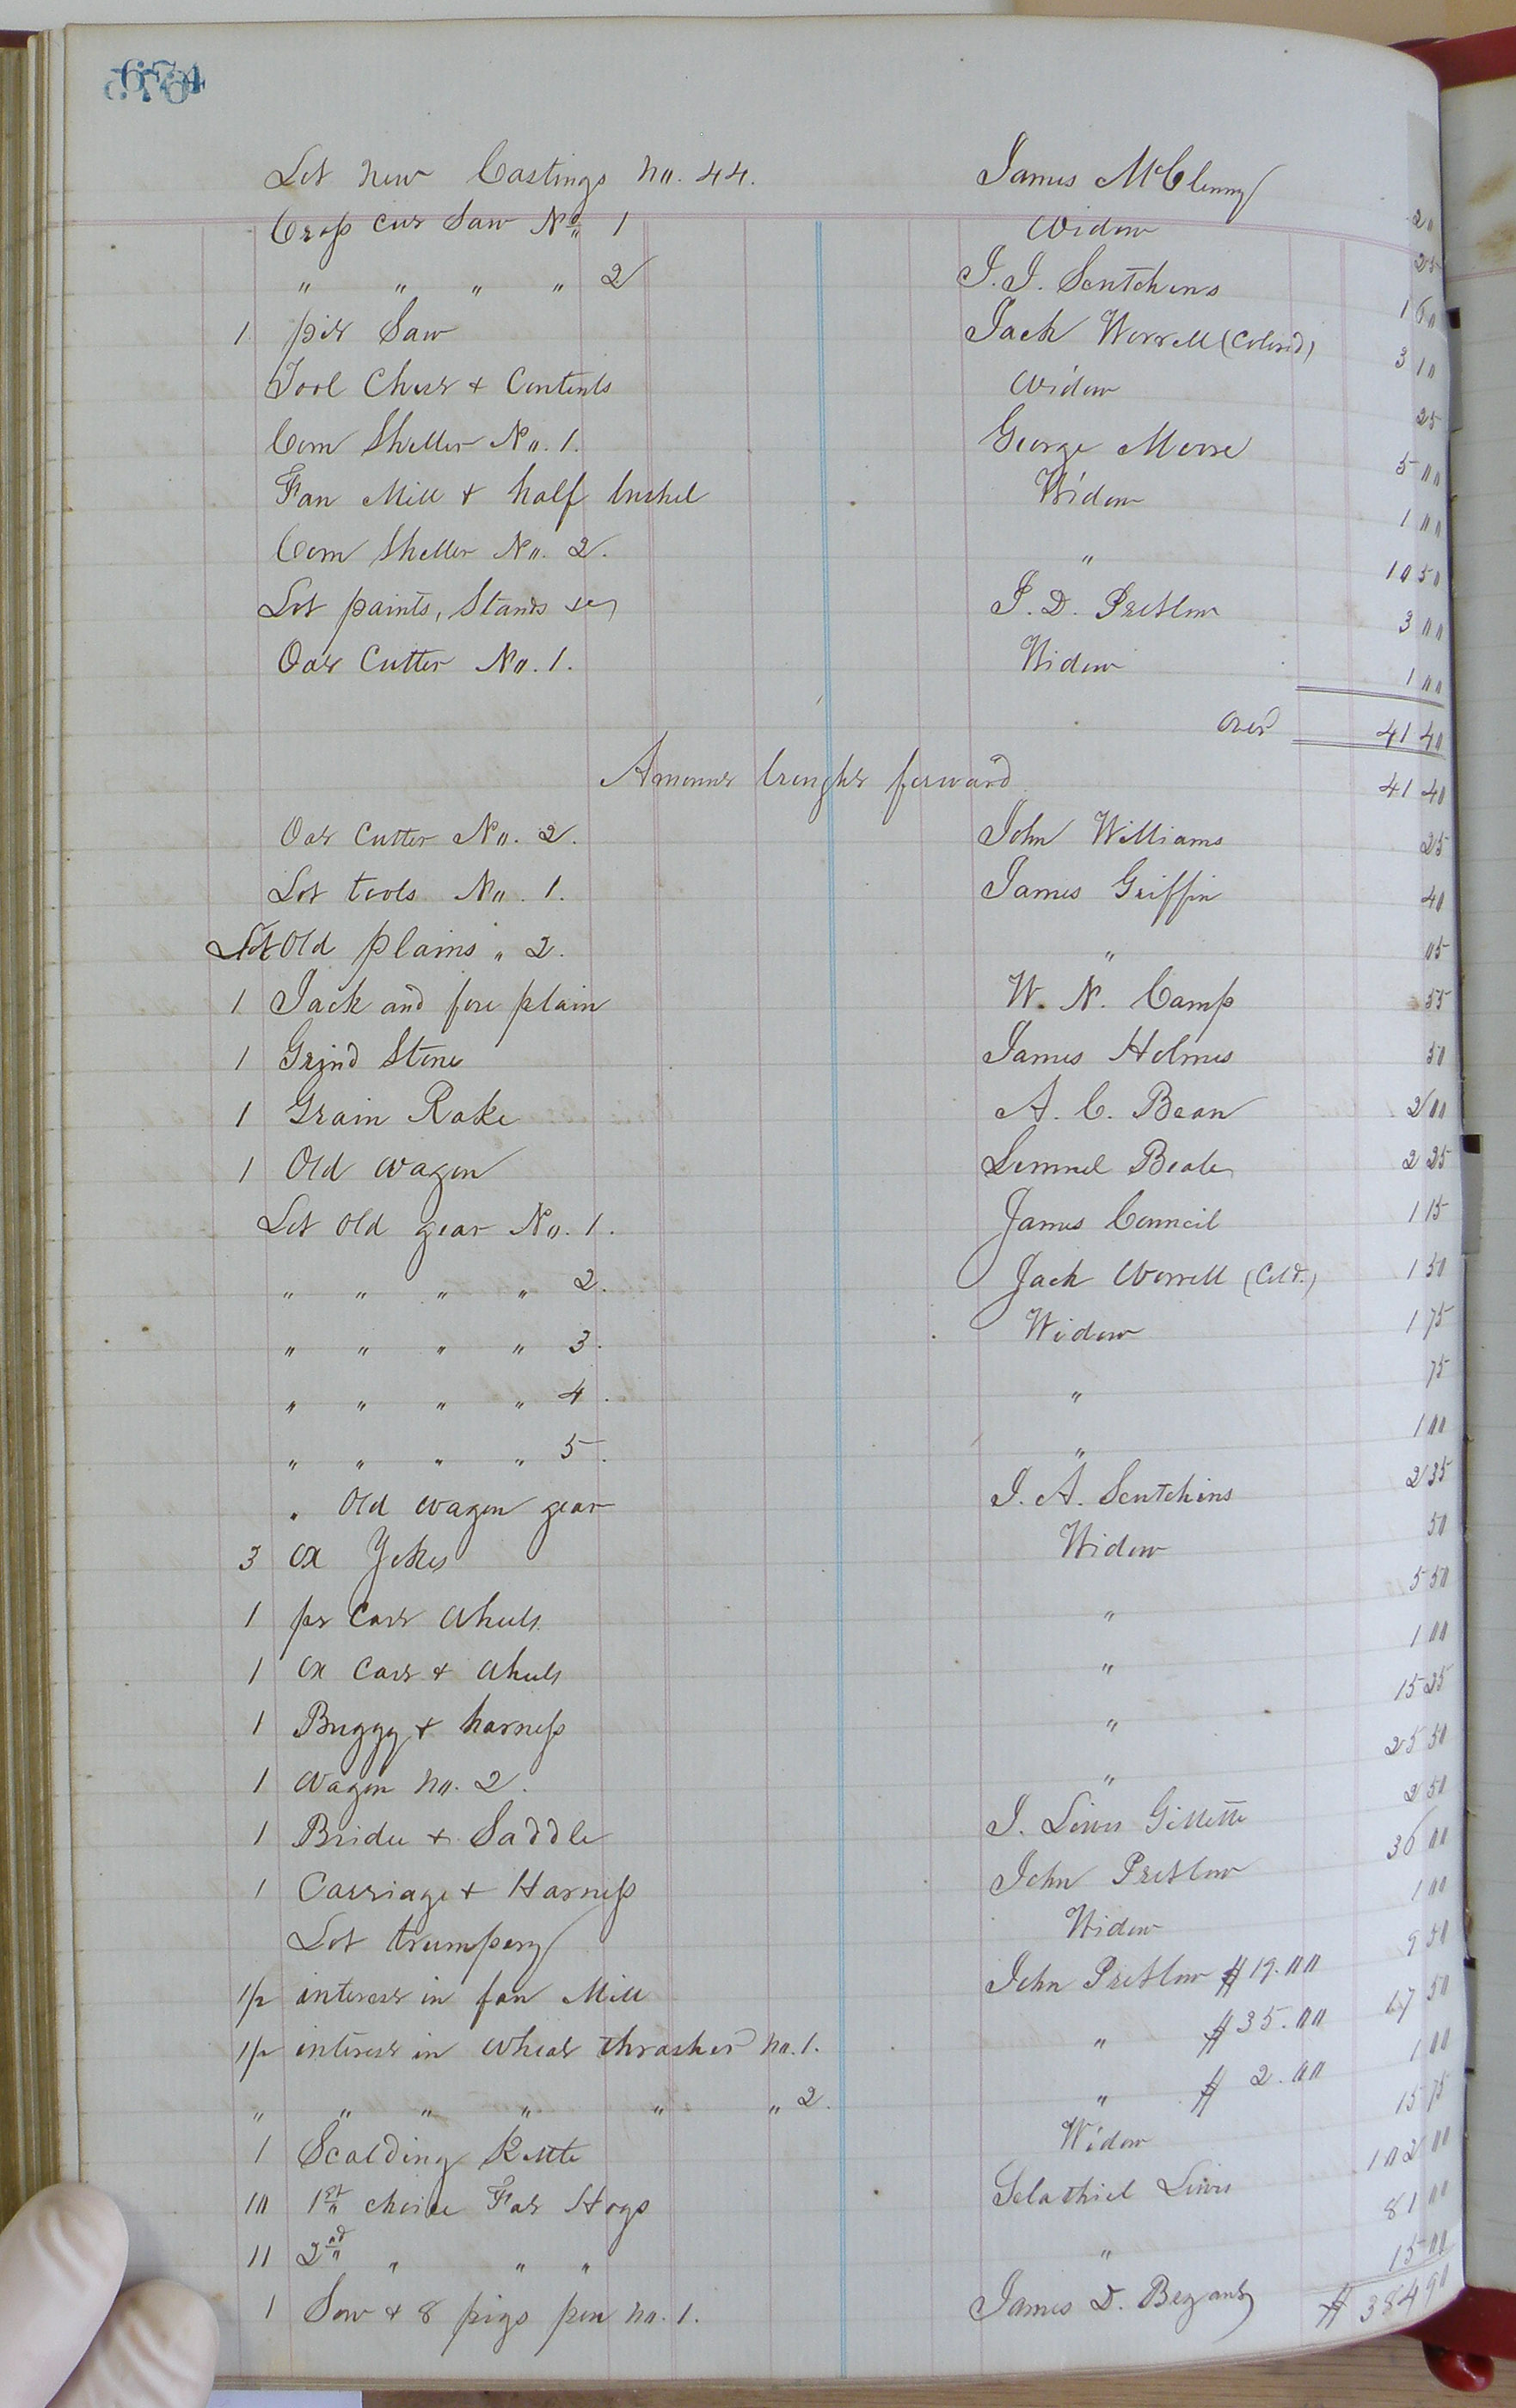 574
Lot new Castings No. 44. James McClenny 20
Cross cut Saw No. 1 Widow 25
" " " " 2 J. J. Scutchins 1 60
1 pit Saw Jack Worrell (Colored) 3 10
Tool Chest & Contents Widow 25
Corn Sheller No. 1. George Moore 5 00
Fan Mill & half bushel Widow 1 00
Corn Sheller No. 2. " 10 50
Lot paints, Stands &c J. D. Pretlow 3 00
Oat Cutter No. 1. Widow 1 00
Over 41 40
Amount brought forward 41 40
Oat Cutter No. 2. John Williams 25
Lot tools No. 1. James Griffin 40
Lot Old plains " 2. " 05
1 Jack and fore plain W. N. Camp 55
1 Grind Stone James Holmes 50
1 Grain Rake A. C. Bean 2 00
1 Old wagon Lemuel Beale 2 25
Lot old gear No. 1. James Council 1 15
" " " " 2. Jack Worrell (Cold.) 1 50
" " " " 3. Widow 1 75
" " " " 4. " 75
" " " " 5. " 1 00
" Old wagon gear J. A. Scutchins 2 35
3 Ox Yokes Widow 50
1 pr Cart wheels " 5 50
1 Ox Cart & wheels " 1 00
1 Buggy & harness " 15 25
1 Wagon No. 2. " 25 50
1 Bridle & Saddle J. Lewis Gillette 2 50
1 Carriage & Harness John Pretlow 36 00
Lot trumpery Widow 1 00
1/2 interest in fan Mill John Pretlow $19.00 9 50
1/2 interest in wheat thrasher No. 1. " $35.00 17 50
" " " " " " 2. " $ 2.00 1 00
1 Scalding Kettle Widow 15 75
10 1st choice Fat Hogs Selathiel Lewis 102 00
11 2nd " " " " 81 00
1 Sow & 8 pigs pen No. 1. James D. Bryant 15 00
$ 384 90